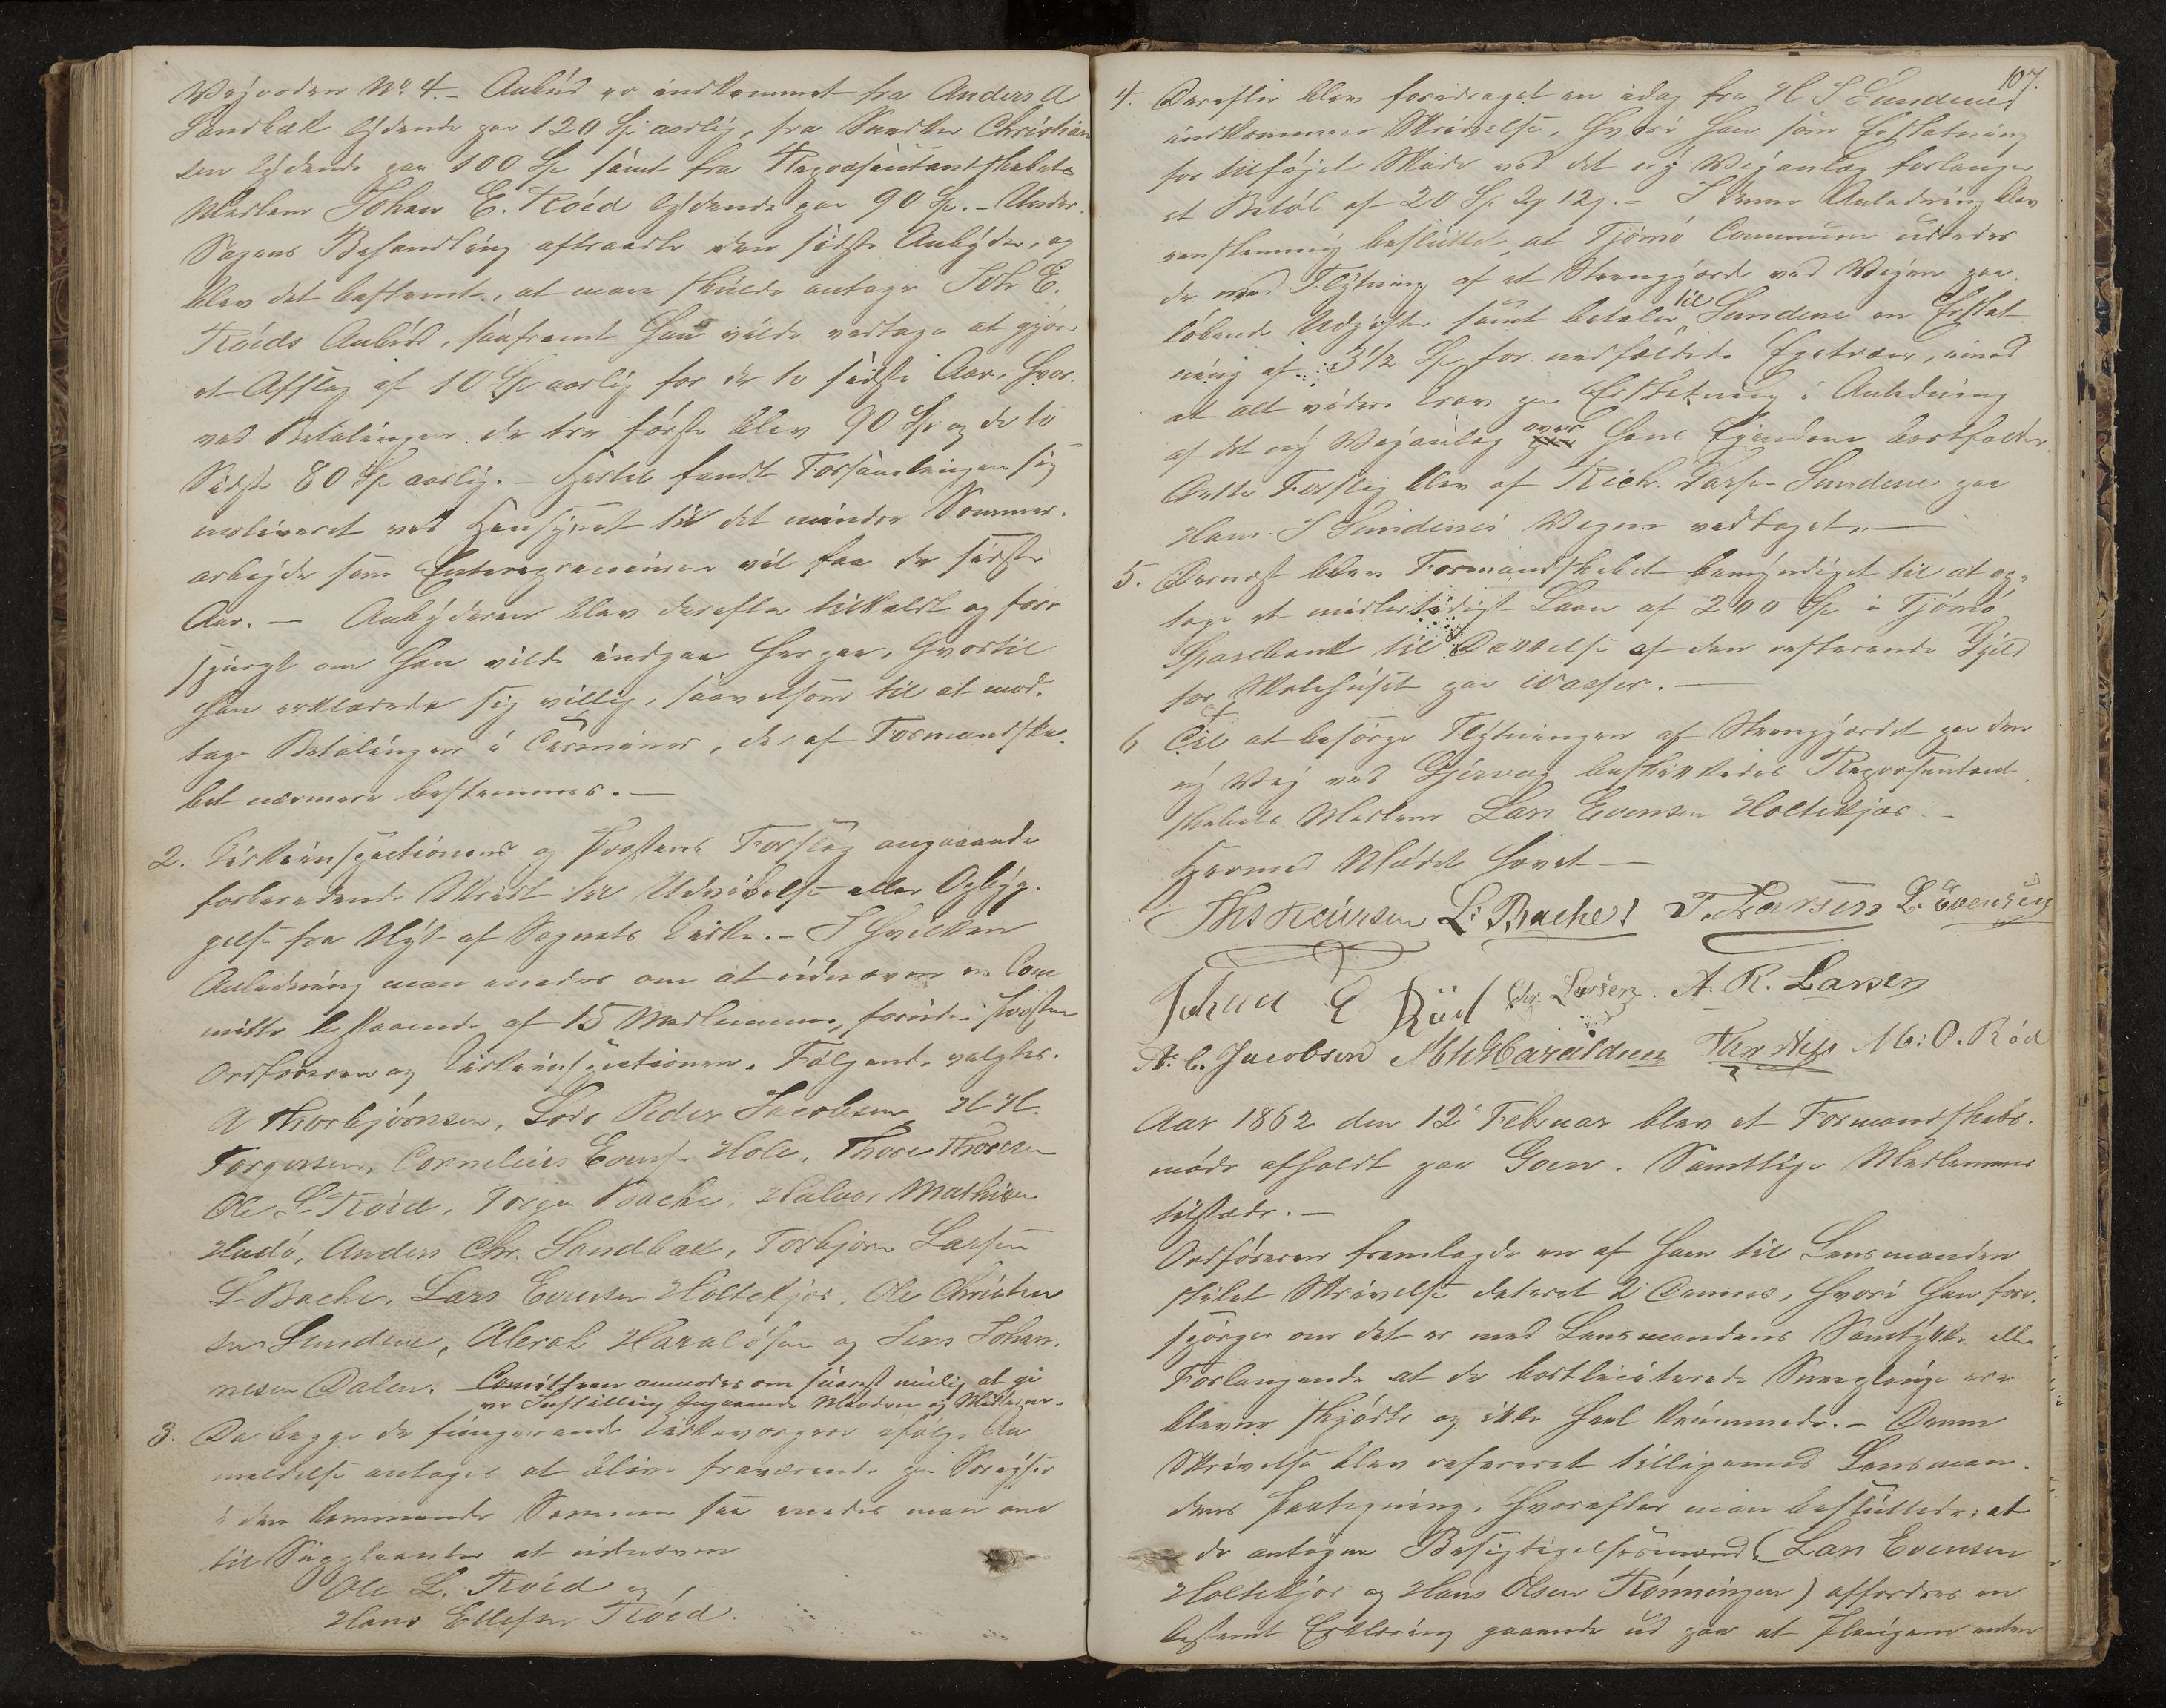 Vejroden No 4. - Anbud er indkommet fra Anders A
Sandbæk lydende paa 120 Sp aarlig, fra Christian
sen lydende paa 100 Sp samt fra Repræsentantskabets
Medlem Johan E. Röed lydende paa 90 Sp. - Under
Sagens Behandling aftraadte den sidste Anbyder, og
blev det bestemt, at man skulde antage Joh E.
Röeds Anbud, saafremt han vilde vedtage at gjøre
et Afslag af 10 Sp aarlig for de to sidste Aar, hvor
ved Betalingen de tre første blev 90 Sp og de to
Sidste 80 Sp aarlig. - Hertil fandt Forsamlingen sig
motiveret ved Hensynet til det mindre Sommer-
arbejde som Entreprenøren vil faa de sidste
Aar. - Anbyderen blev derefter tilkaldt og fore
spurgt om han vilde indgaa herpaa, hvortil
han erklærede sig villig, saavelsom til at mod-
tage Betalingen i Terminer, der af Formandska-
bet nærmere bestemmes. -
2. Kirkeinspectionens og Provstens Forslag angaaende
forberedende Skridt til Udvidelse eller Opbyg-
gelse fra Nyt af Sognets Kirke. - I hvilken
Anledning man enedes om at udnævne en Com
mitte bestaaende af 15 Medlemmer, foruden Provsten
Ordføreren og Kirkeinspectionen. Følgende valgtes.
A Thorbjörnsen, Sørn Peder Jacobsen, H. H.
Torgersen, Cornelius Evens. Hole, Thore Thoresen
Ole L. Röed, Torger Bache, Halvor Mathisen
Hudö, Anders Chr. Sandbæk, Torbjörn Larsen
L Bache, Lars Evensen Holtekjær, Ole Christen
sen Sundene, Abrah Haraldsen og Jens Johan-
nesen Dalen. Comitteen anmodes om snarest mulig at gi
ve Indstilling angaaende Maaden og Midlerne.
3. Da begge de fungerende Kirkeværger ifølge An
meldelse antages at blive fraværende paa Søreise
i den kommende Sommer saa enedes man om
til Suppleanter at udnævne
Ole L. Röed og
Hans Ellefsen Röed.
107.
4. Derefter blev foredraget en idag fra H J Sundene
indkommen Skrivelse, hvori han som Erstatning
for tilføjet Skade ved det ny Vejanlæg forlanger
et Beløb af 20 Sp 2 12. - I denne Anledning blev
eenstemmig besluttet at Tjömö Commune udreder
de med Flytning af et Steengjærde ved Vejen paa
løbende Udgifter samt betaler til Sundene en Erstat
ning af 3 1/2 Sp for nedfældede Egetræer, imod
at alt videre Krav paa Erstatning i Anledning
af det ny Vejanlæg over hans Ejendom bortfalder.
Dette Forslag blev af Rich. Larsen Sundene paa
Hans J Sundenes Vegne vedtaget. -
5. Dernest blev Formandskabet bemyndiget til at op-
tage et midlertidigt Laan af 200 Sp i Tjömö
Sparebank til Dækkelse af den resterende Gjeld
for Skolehuset paa Waaser. -
6 Til at besørge Flytningen af Steengjærdet paa den
ny Vej ved Gjervaag beskikkedes Repræsentant
skabets Medlem Lars Evensen Holtekjær. -
Hermed Mødet hævet -
Ths Reiersen L. Bache T. Larsen L. Evensen
Johan E Röed Chr. Larsen. A. R. Larsen
A. C. Jacobsen Haraldsen M: O. Röd
Aar 1862 den 12te Februar blev et Formandskabs-
møde afholdt paa Goen. Samtlige Medlemmer
tilstede. -
Ordføreren fremlagde en af ham til Lensmanden
stilet Skrivelse dateret 2 Dennes, hvori han fore-
spørger om det er med Lensmandens Samtykke eller
Forlangende at de bortliciterede Sneeplouge ere
blevne skjødte og ikke heel tømmrede. - Denne
Skrivelse blev refereret tilligemed Lensman-
dens Paategning, hvorefter man besluttede, at
de antagne Besigtigelsesmænd (Lars Evensen
Holtekjær og Hans Olsen Rönningen) affordres en
bestemt Erklæring gaaende ud paa at Plougene enten